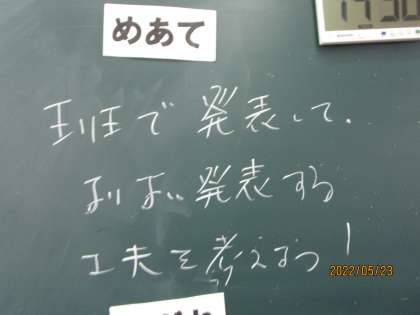 めあて
班で発表して、
よりよい発表する
工夫を考えよう!
2022/05/23